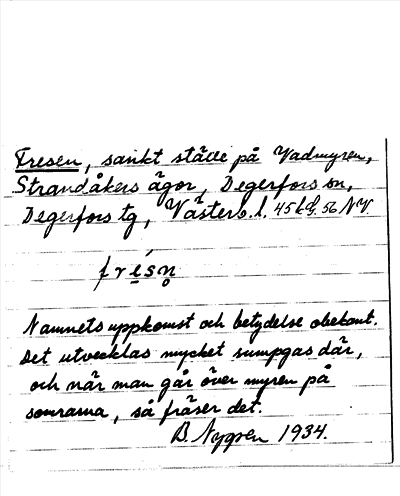 Fresen, sankt ställe på Vadmyren,
Strandåkers ägor, Degerfors sn,
Degerfors tg, Västerb. l. 45 56 NV.
frésn̥
Namnets uppkomst och betydelse obekant.
Det utvecklas mycket sumpgas där,
och när man går över myren på
somrarna, så fräser det.
B. Nygren 1934.